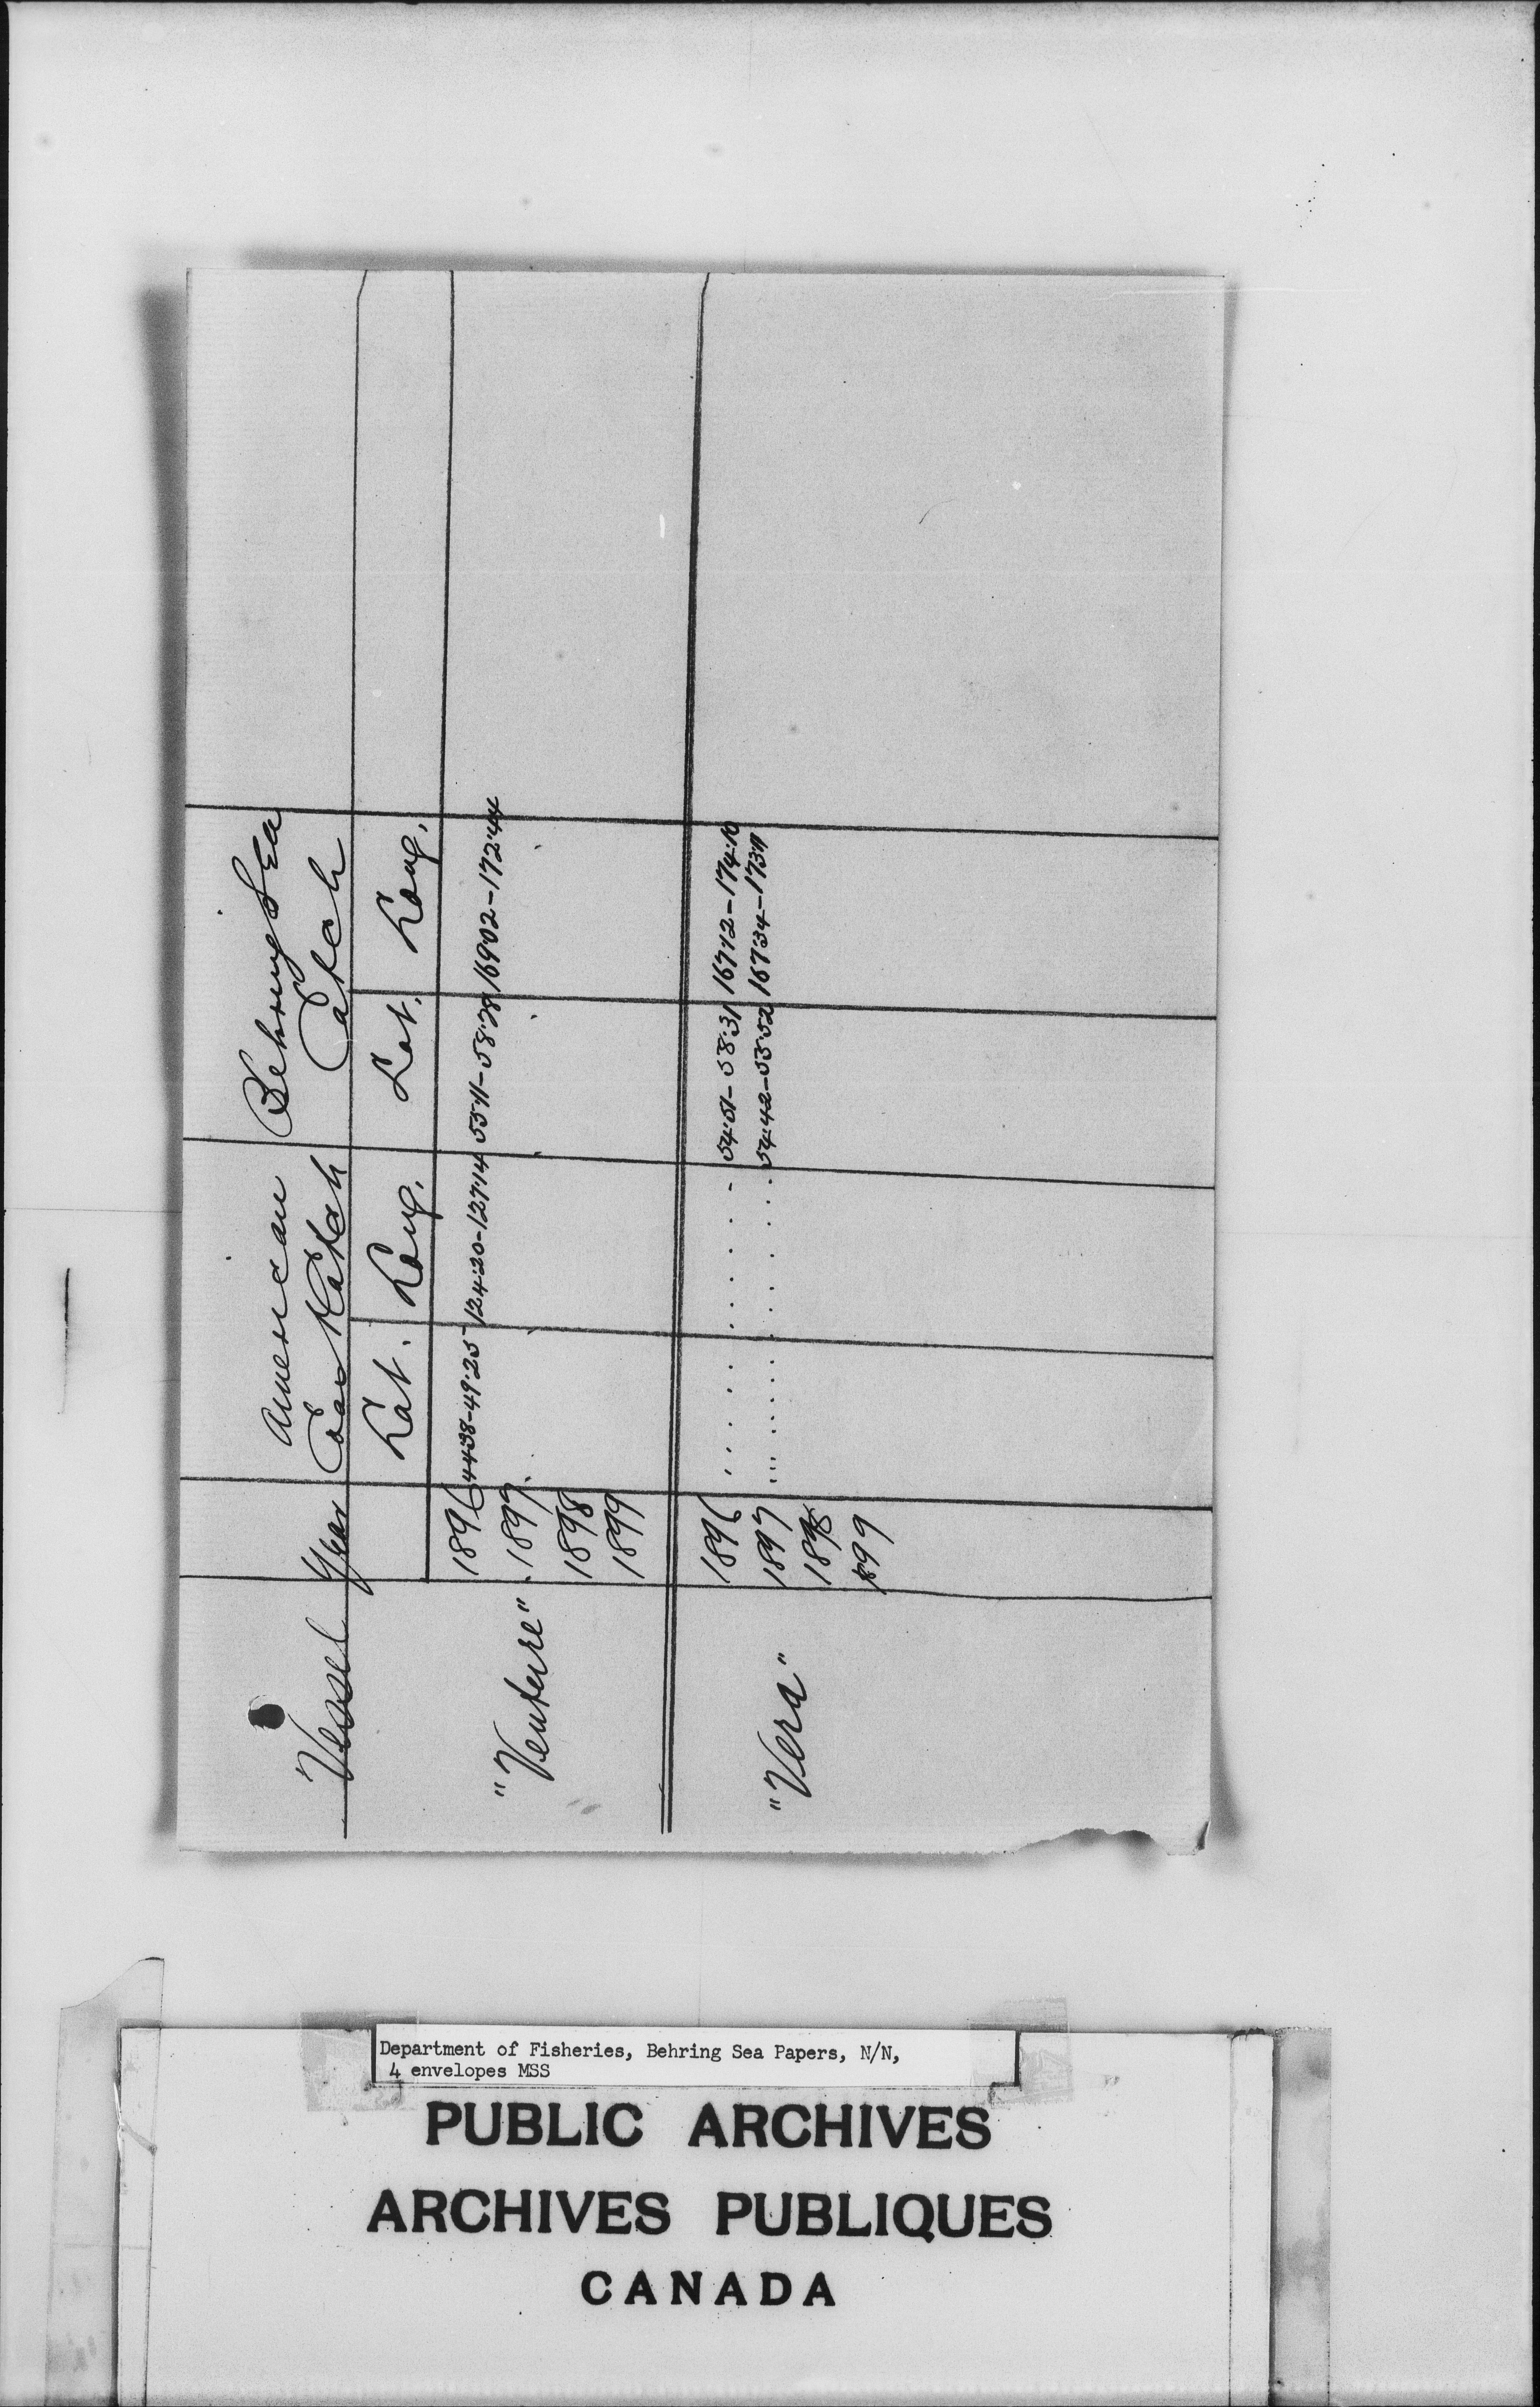 American Behring Sea
Vessel Year Coas Catch Catch
Lat. Long. Lat. Long.
"Venture" 1896 44·38-49·25 124·20-127·14 55·11-58·28 169·02-172·44
1897
1898
1899
"Vera" 1896 54·51-58·31 167·12-174·10
1897 54·42-55·52 167·34-173·11
1898
1899
Department of Fisheries, Behring Sea Papers, N/N,
4 envelopes MSS
PUBLIC ARCHIVES
ARCHIVES PUBLIQUES
CANADA